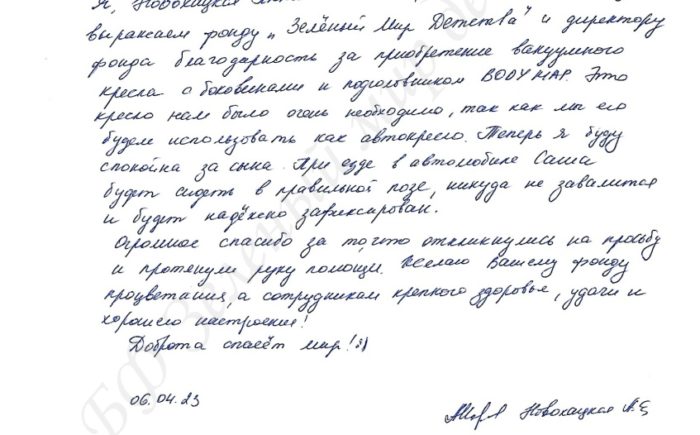 Я, Новохацкая
выражаем фонду „Зелёный Мир Детства" и директору
фонда благодарность за приобретение вакуумного
кресла с боковинами и подголовником BODYMAP. Это
кресло нам было очень необходимо, так как мы его
будем использовать как автокресло. Теперь я буду
спокойна за сына. При езде в автомобиле Саша
будет сидеть в правильной позе, никуда не завалится
и будет надёжно зафиксирован.
Огромное спасибо за то, что откликнулись на просьбу
и протянули руку помощи. Желаю Вашему фонду
процветания, а сотрудникам крепкого здоровья, удачи и
хорошего настроения!
Доброта спасёт мир! :)
06.04.23
Новохацкая А.Е.
БФ Зеленый мир де